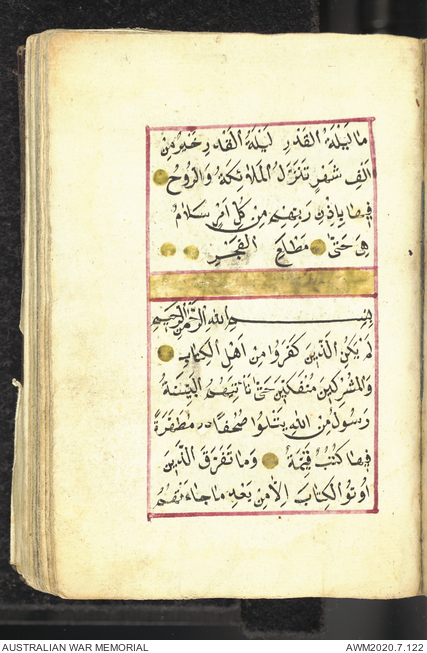 مَا لَيْلَةُ الْقَدْرِ لَيْلَةُ الْقَدْرِ خَيْرٌ مِنْ
اَلْفِ شَهْرٍ تَنَزَّلُ الْمَلَائِكَةُ وَالرُّوحُ
فِيهَا بِاِذْنِ رَبِّهِمْ مِنْ كُلِّ اَمْرٍ سَلَامٌ
هِيَ حَتّٰى مَطْلَعِ الْفَجْرِ
بِسْمِ اللهِ الرَّحْمٰنِ الرَّحِيمِ
لَمْ يَكُنِ الَّذِينَ كَفَرُوا مِنْ اَهْلِ الْكِتَابِ
وَالْمُشْرِكِينَ مُنْفَكِّينَ حَتّٰى تَاْتِيَهُمُ الْبَيِّنَةُ
رَسُولٌ مِنَ اللهِ يَتْلُوا صُحُفًا مُطَهَّرَةً
فِيهَا كُتُبٌ قَيِّمَةٌ وَمَا تَفَرَّقَ الَّذِينَ
اُوتُوا الْكِتَابَ اِلَّا مِنْ بَعْدِ مَا جَاءَتْهُمُ
AUSTRALIAN WAR MEMORIAL AWM2020.7.122